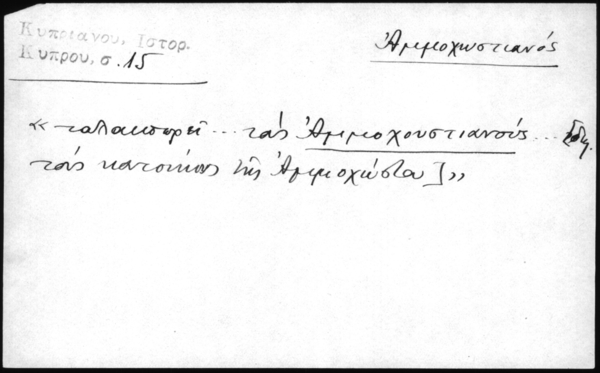 Κυπριανου, Ιστορ.
Κυπρου, σ. 15
Ἀμμοχωστιανός
« ταλαιπωρεῖ ... τοὺς Ἀμμοχουστιανούς ... [δηλ.
τοὺς κατοίκους τῆς Ἀμμοχώστου] »